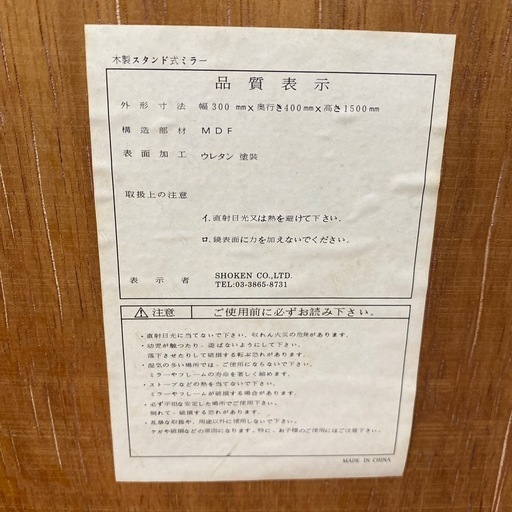 木製スタンド式ミラー
品質表示
外形寸法 幅300mm×奥行き400mm×高さ1500mm
構造部材 MDF
表面加工 ウレタン塗装
取扱上の注意
イ.直射日光又は熱を避けて下さい.
ロ.鏡表面に力を加えないでください.
表示者 SHOKEN CO.,LTD.
TEL:03-3865-8731
⚠注意 ご使用前に必ずお読み下さい.
・直射日光に当てないで下さい. 収れん火災の危険があります.
・幼児が触ったり、遊ばないようにして下さい.
落下させたりして破損する転ぶ恐れがあります.
・湿気の多い場所では、ご使用にならないで下さい.
ミラーやフレームの寿命を著しく縮めます.
・ストーブなどの熱を当てないで下さい.
ミラーやフレームが破損する場合があります.
・必ず平坦な安定した場所でご使用下さい.
倒れて、破損する恐れがあります.
・乱暴な取扱や、用途以外に使用しないで下さい.
ケガや破損などの原因になります. 特に、お子様のご使用にはご注意下さい.
MADE IN CHINA